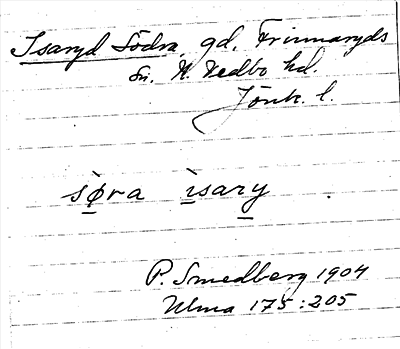 Isaryd Södra, gd, Frinnaryds
sn. N. Vedbo hd.
Jönk. l.
sø̱̀ra ì̱sary̱
P. Smedberg 1904
Ulma 175:205